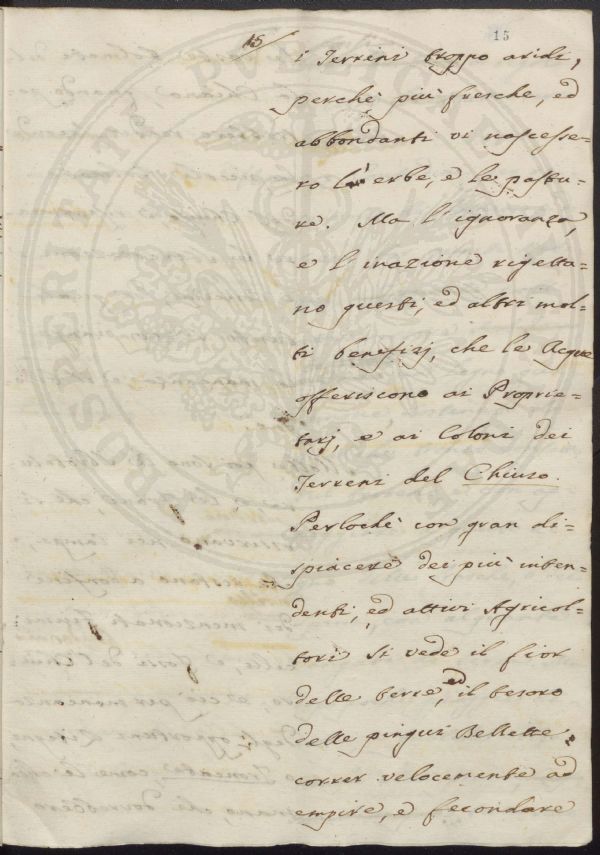 15
15
i Terreni troppo aridi,
perchè più fresche, ed
abbondanti vi nascesse-
ro l'erbe, e le pastu-
re. Ma l'ignoranza,
e l'inazione rigetta-
no questi, ed altri mol-
ti benefizj, che le Acque
offeriscono ai Proprie-
tarj, e ai Coloni dei
Terreni del Chiuso.
Perlochè con gran di-
spiacere dei più inten-
denti, ed attivi Agricol-
tori si vede il fior
delle terre, ed il tesoro
delle pingui Bellette
correr velocemente ad
empire, e fecondare
PVBLICAE
PROSPERITATI